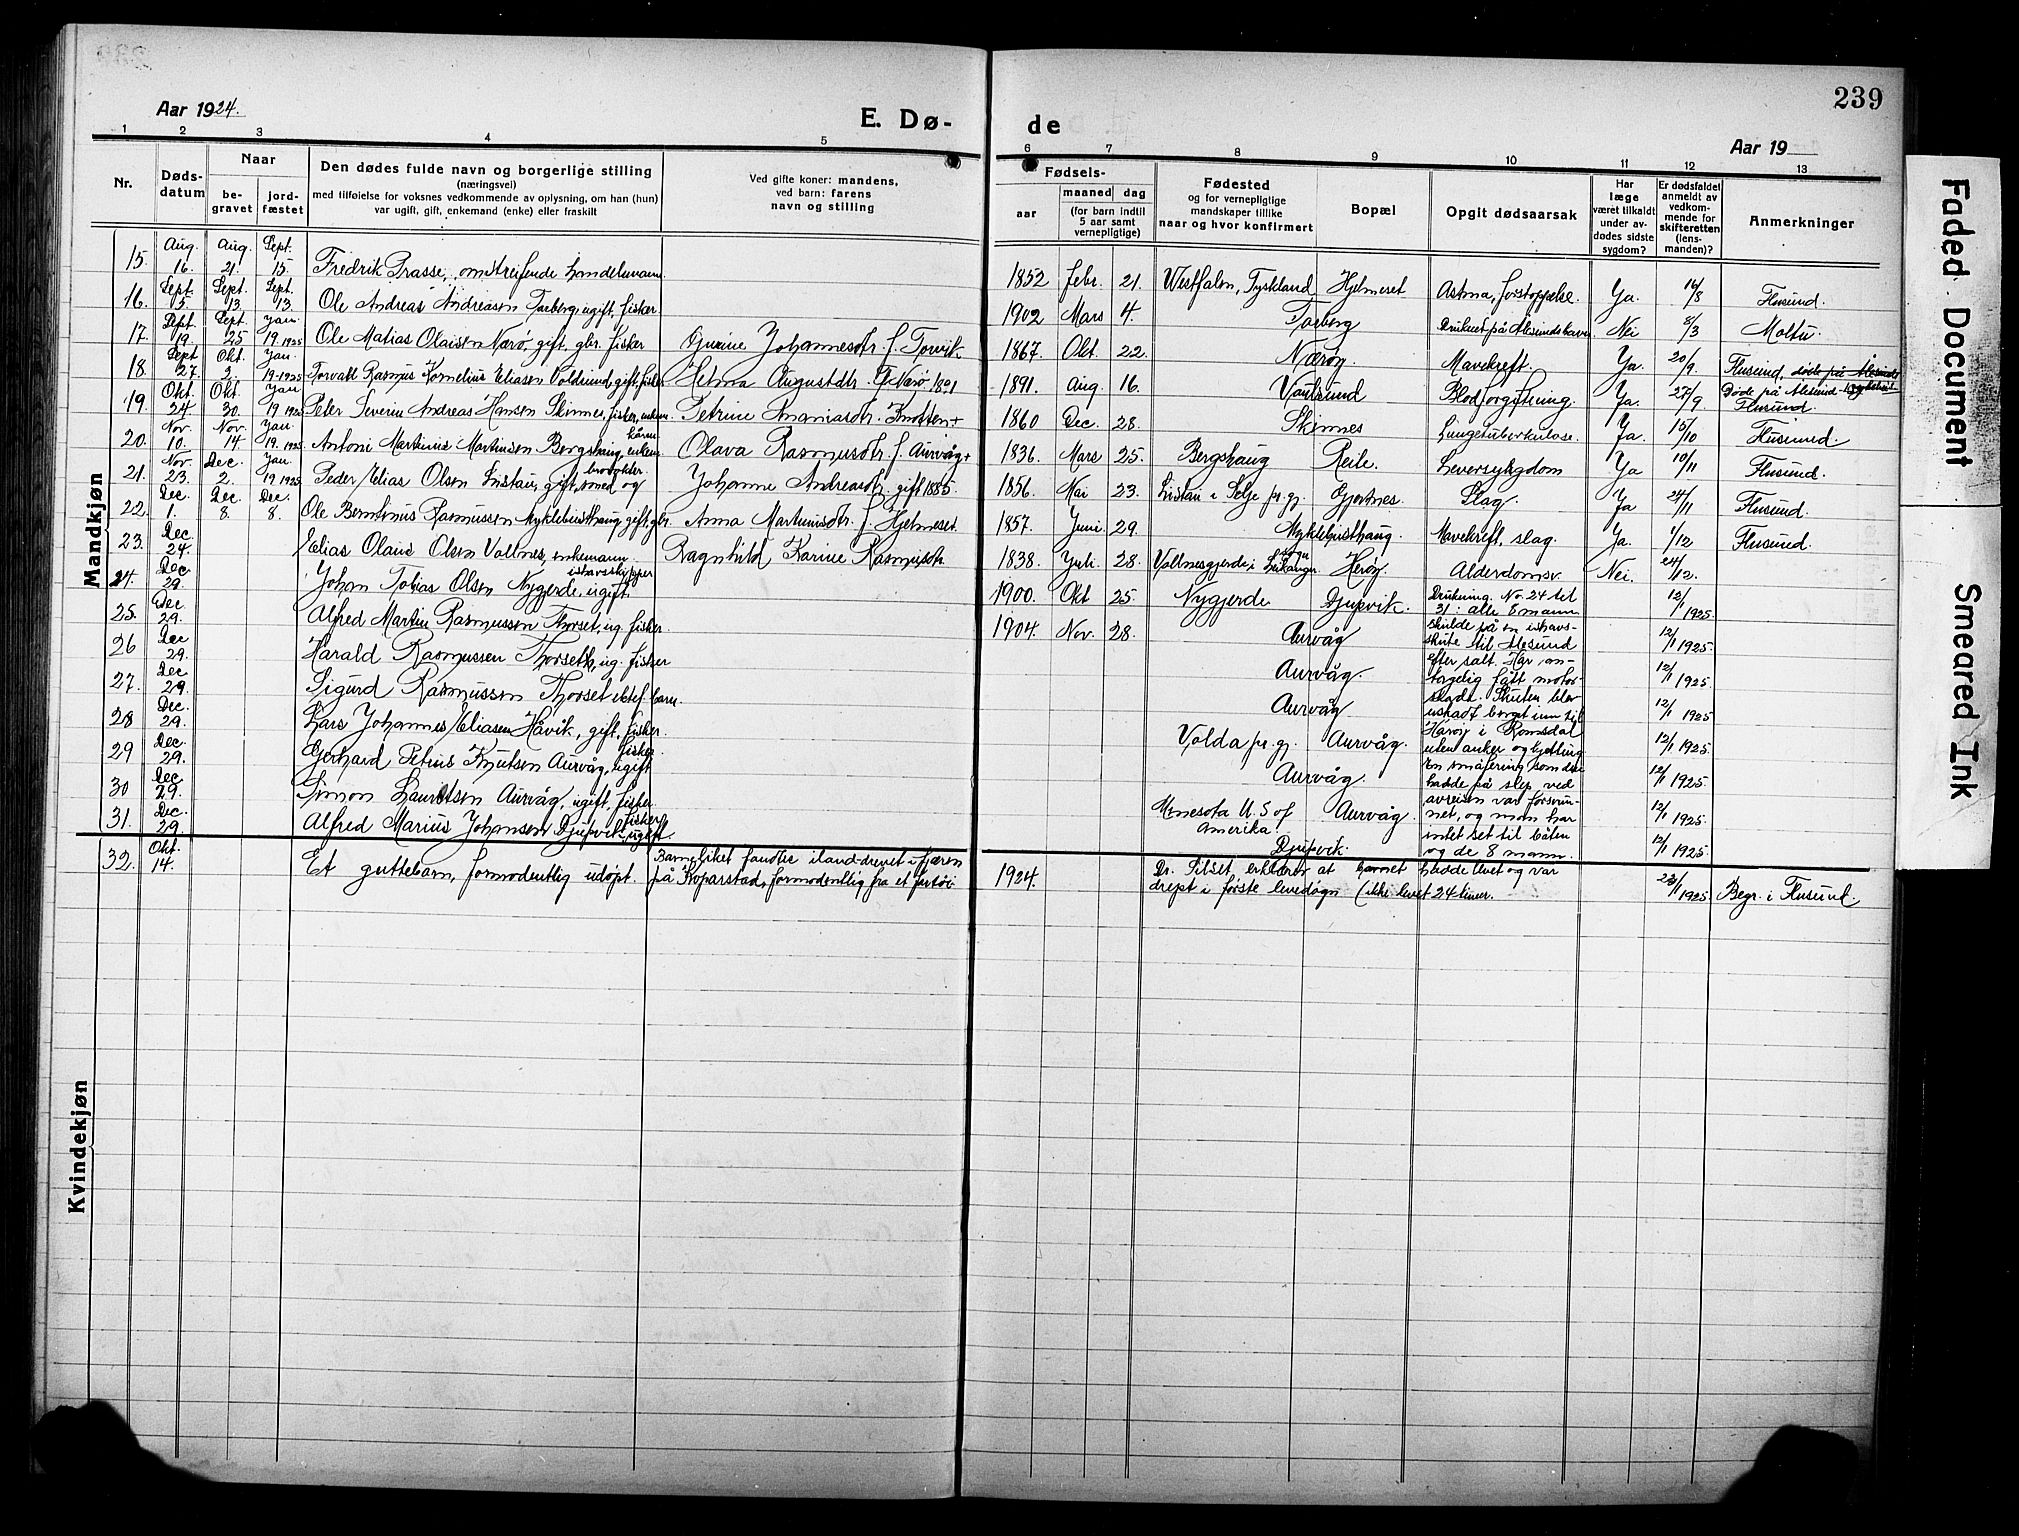 239
Aar 1924.
E. Dø-
de
Aar 19
1 2 3 4 5 6 7 8 9 10 11 12 13
Nr.
Døds-
datum
Naar
be-
gravet
jord-
fæstet
Den dødes fulde navn og borgerlige stilling
(næringsvei)
med tilføielse for voksnes vedkommende av oplysning, om han (hun)
var ugift, gift, enkemand (enke) eller fraskilt
Ved gifte koner: mandens,
ved barn: farens
navn og stilling
Fødsels-
aar
maaned dag
(for barn indtil
5 aar samt
vernepligtige)
Fødested
og for vernepligtige
mandskaper tillike
naar og hvor konfirmert
Bopæl
Opgit dødsaarsak
Har
læge
været tilkaldt
under av-
dødes sidste
sygdom?
Er dødsfaldet
anmeldt av
vedkom-
mende for
skifteretten
(lens-
manden)?
Anmerkninger
Mandkjøn
15. Aug. 16. Aug. 21. Sept. 15. Fredrik Prasse, omstreifende handelsmann 1852 Febr. 21. Westfalen, Tyskland Hjelmeset Astma, forstoppelse. Ja. 16/8 Flusund.
16. Sept. 5. Sept. 13. Sept. 13. Ole Andreas Andreasen Torberg, ugift, fisker 1902 Mars 4. Torberg Druknet på Alesunds havn Nei 8/3 Moltu.
17. Sept. 19. Sept. 25 Jan. 19. 1925 Ole Matias Olaisen Nærø, gift, gbr. fisker Gurine Johannesdtr. f. Torvik 1867. Okt. 22. Nærøy Mavekreft. Ja. 20/9. Flusund.
18. Sept. 27. Okt. 2. Jan. 19.-1925 Torvall Rasmus Kornelius Eliasen Voldsund, gift, fisker Helma Augustdtr. G. Nærø. 1891 1891. Aug. 16. Voldsund Blodforgiftning. Ja. 27/9 Døde på Alesund sykehus Flusund.
19. Okt. 24 Okt. 30. Jan. 19 1925 Peter Severin Andreas Hansen Skinnes, fisker, enkem. Petrine Ananiasdtr. Knotten + 1860 Dec. 28. Skinnes Lungetuberkulose. Ja. 15/10 Flusund.
20. Nov. 10. Nov. 14 Jan. 19. 1925. Antoni Martinus Martinsen Bergshaug, enkem. kårm. Olava Rasmusdtr. f. Aurvåg + 1836. Mars 25. Bergshaug Reile. Leversykgdom Ja 10/11 Flusund.
21. Nov. 23. Dec. 2. Jan. 19 1925. Peder Elias Olsen Listau, gift, smed og brovokter. Johanne Andreasdtr. gift 1885. 1856. Mai 23. Listau i Selje pr.gj. Gjertnes. Slag Ja 24/11 Flusund.
22. Dec. 1. Dec. 8. Dec. 8. Ole Berntinus Rasmussen Myklebusthaug, gift, gbr. Anna Martinusdtr. f. Hjelmeset 1857. Juni 29. Myklebusthaug. Mavekreft, slag. Ja. 1/12 Flusund.
23. Dec. 24. Elias Olaus Olsen Vollnes, enkemann. Ragnhild Karine Rasmusdtr. 1838. Juli 28. Vollnesgjerde, i Leikanger sogn Herøy. Alderdomsv. Nei. 24/12.
24. Dec. 29. Johan Tobias Olsen Nygjerde, ugift. ishavsskipper 1900. Okt 25. Nygjerde Djupvik. 12/1 1925.
25. Dec. 29. Alfred Martin Rasmussen Thorset, ug. fisker. 1904. Nov. 28. Aurvåg 12/1 1925.
26 Dec 29. Harald Rasmussen Thorseth, ug. fisker Aurvåg. 12/1 1925.
27. Dec 29. Sigurd Rasmussen Thorset ektef. barn. Aurvåg 12/1 1925
28 Dec. 29. Lars Johannes Eliasen Håvik, gift, fisker. Volda pr.gj. Aurvåg. 12/1 1925
29 Dec. 29. Gerhard Petrus Knutsen Aurvåg, ugift fisker. Aurvåg. 12/1 1925
30 Dec. 29. Simon Lauritsen Aurvåg, ugift, fisker Minesota U. S of Amerika. Aurvåg. 12/1 1925.
31. Dec. 29. Alfred Marius Johansen Djupvik ugift fisker Djupvik. 12/1 1925.
Drukning. No. 24 til
31: alle 8 mann
skulde på en ishavs-
skute til Alesund
efter salt. Har an-
tagelig fått motor-
skade. Skuten blev
uskadt berget inn til
Harøy i Romsdal
uten anker og kjetting
En småfæring som de
hadde på slep ved
avreisen var forsvun-
net, og man har
intet set til båten
og de 8 mann.
32. Okt. 14. Et guttebarn, formodentlig udøpt. Barneliket fandtes iland-drevet i fjæren
på Koparstad, formodentlig fra et fartøi 1924. Dr. Silset erklærer at barnet hadde levet og var
drept i første levedøgn (ikke levet 24 timer. 23/1 1925. Begr. i Flusund.
Kvindekjøn
Faded Document
Smeared Ink